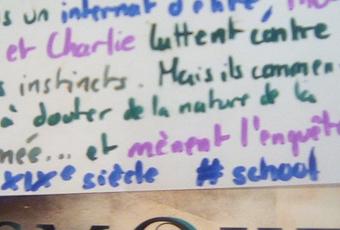 un internat d'élite,
et Charlie luttent contre
instincts. Mais ils commen-
à douter de la nature de la
née... et mènent l'enquête
XIXe siècle # school